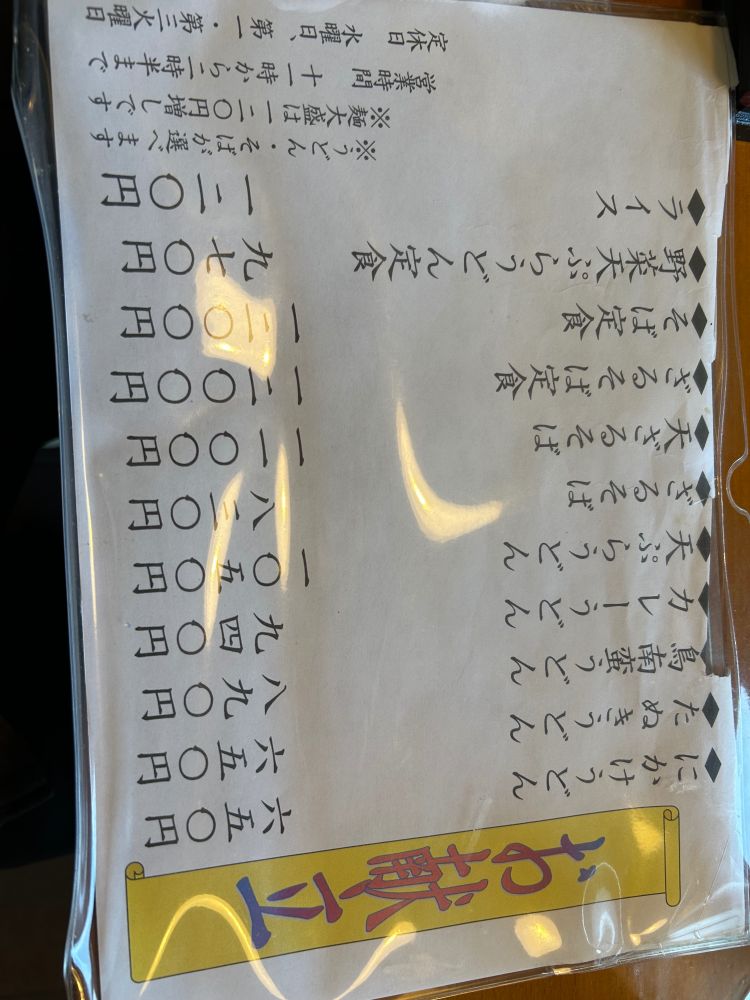 お献立
◆にかけうどん 六五〇円
◆たぬきうどん 六五〇円
◆鳥南蛮うどん 八九〇円
◆カレーうどん 九四〇円
◆天ぷらうどん 一〇五〇円
◆ざるそば 八三〇円
◆天ざるそば 一一〇〇円
◆ざるそば定食 一二〇〇円
◆そば定食 一二〇〇円
◆野菜天ぷらうどん定食 九七〇円
◆ライス 一二〇円
※うどん・そばが選べます
※麺大盛は一二〇円増しです
営業時間 十一時から二時半まで
定休日 水曜日、第一・第三火曜日